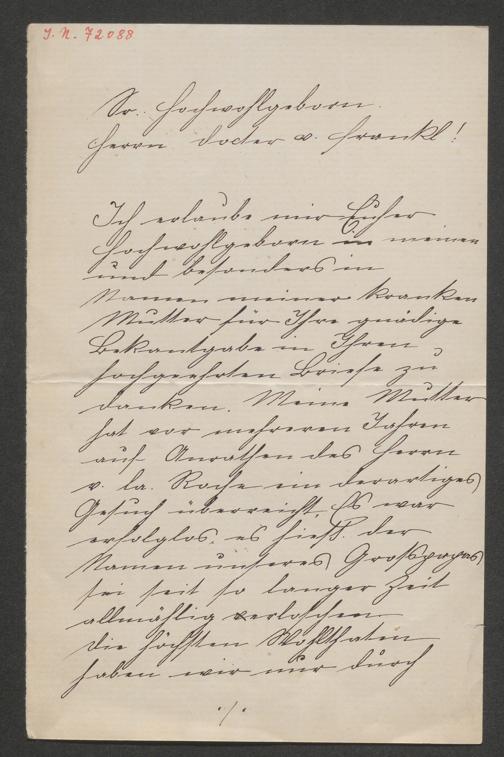 J. N. 72088
Sr. Hochwohlgeborn
Herrn Docter v. Frankl!
Ich erlaube mir Euher
Hochwohlgeborn in meinen
und besonders in
Namen meiner kranken
Mutter für Ihre gnädige
Bekantgabe in Ihren
hochgeehrten Briefe zu
danken. Meine Mutter
hat vor mehreren Jahren
auf Anrathen des Herrn
v. la. Roche ein derartiges
Gesuch überreicht. Es war
erfolglos, es hieß. der
Namen unseres Großpapas
sei seit so langer Zeit
allmählig verloschen
die höchsten Wohlthaten
haben wir nur durch
./.